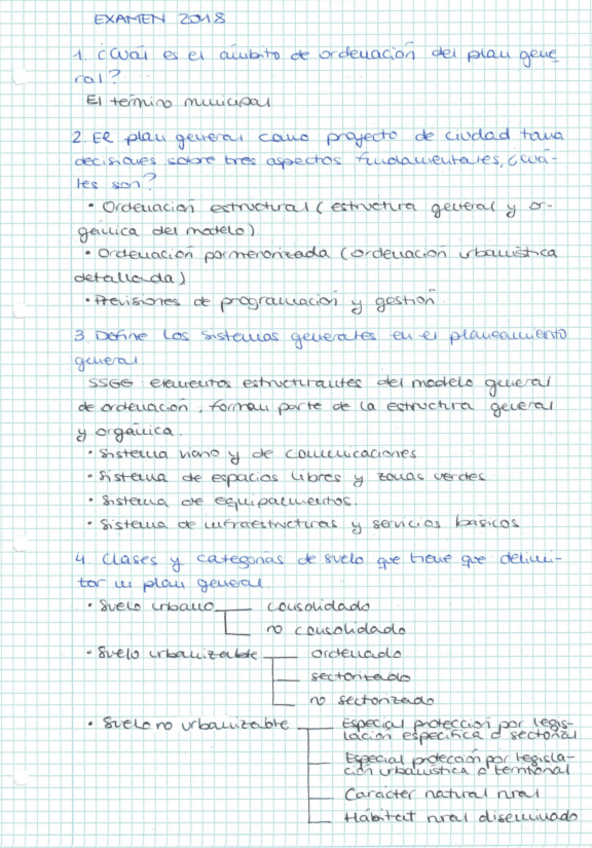 EXAMEN 2018
1. ¿Cuál es el ámbito de ordenación del plan gene
ral?
El término municipal
2. El plan general como proyecto de ciudad toma
decisiones sobre tres aspectos fundamentales, ¿cuá-
les son?
• Ordenación estructural (estructura general y or-
gánica del modelo)
• Ordenación pormenorizada (ordenación urbanística
detallada)
• Previsiones de programación y gestión
3. Define los sistemas generales en el planeamiento
general.
SSGG elementos estructurantes del modelo general
de ordenación, forman parte de la estructura general
y orgánica.
• Sistema viario y de comunicaciones
• Sistema de espacios libres y zonas verdes
• Sistema de equipamientos.
• Sistema de infraestructuras y servicios básicos
4. Clases y categorías de suelo que tiene que delimi-
tar un plan general.
• Suelo urbano consolidado
no consolidado
• Suelo urbanizable ordenado
sectorizado
no sectorizado
• Suelo no urbanizable Especial protección por legis-
lación específica o sectorial
Especial protección por legisla-
ción urbanística o territorial
Carácter natural rural
Hábitat rural diseminado